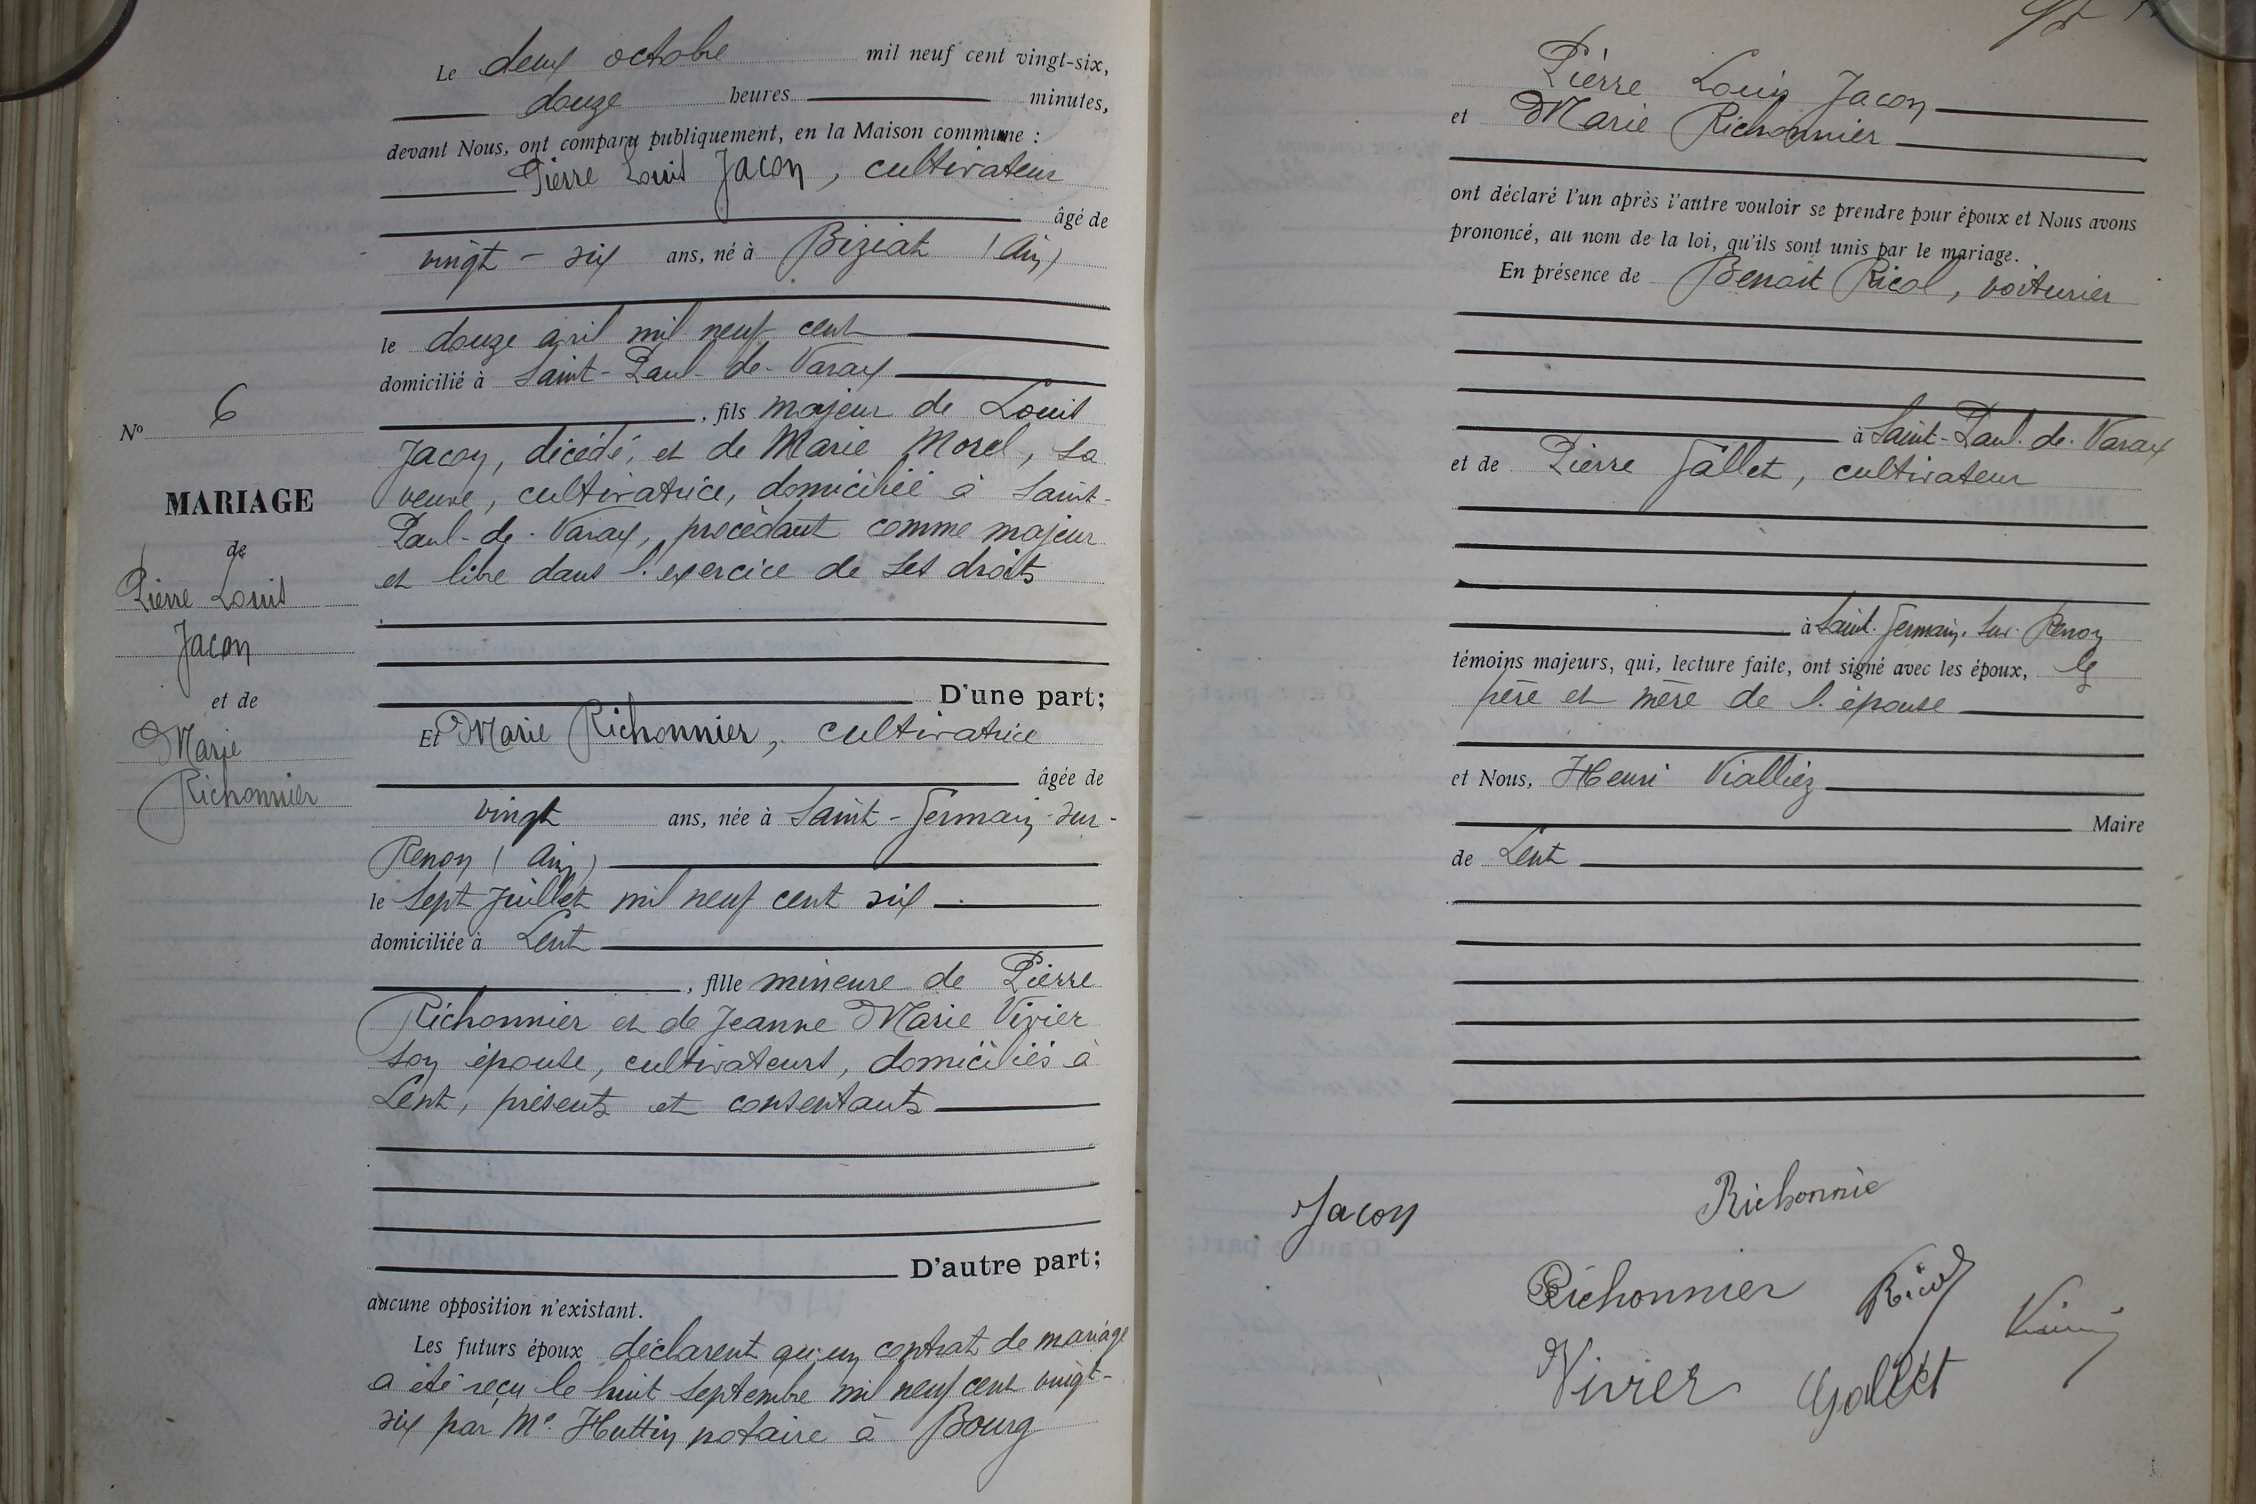 Le deux octobre mil neuf cent vingt-six,
douze heures minutes,
devant Nous, ont comparu publiquement, en la Maison commune :
Pierre Louis Jacon, cultivateur
âgé de
vingt-six ans, né à Biziat (Ain)
le douze avril mil neuf cent
domicilié à Saint-Paul-de-Varax
, fils majeur de Louis
Jacon, décédé, et de Marie Morel, sa
veuve, cultivatrice, domiciliée à Saint-
Paul-de-Varax, procédant comme majeur
et libre dans l'exercice de ses droits
D'une part;
Et Marie Richonnier, cultivatrice
âgée de
vingt ans, née à Saint-Germain-sur-
Renon (Ain)
le sept juillet mil neuf cent six
domiciliée à Lent
, fille mineure de Pierre
Richonnier et de Jeanne Marie Vivier
son épouse, cultivateurs, domiciliés à
Lent, présents et consentants
D'autre part;
aucune opposition n'existant.
Les futurs époux déclarent qu'un contrat de mariage
a été reçu le huit septembre mil neuf cent vingt-
six par Me Huttin notaire à Bourg
No 6
MARIAGE
de
Pierre Louis
Jacon
et de
Marie
Richonnier
Pierre Louis Jacon
et Marie Richonnier
ont déclaré l'un après l'autre vouloir se prendre pour époux et Nous avons
prononcé, au nom de la loi, qu'ils sont unis par le mariage.
En présence de Benoit Ricol, voiturier
à Saint-Paul-de-Varax
et de Pierre Gallet, cultivateur
à Saint-Germain-sur-Renon
témoins majeurs, qui, lecture faite, ont signé avec les époux, les
père et mère de l'épouse
et Nous, Henri Vialliez
Maire
de Lent
Jacon
Richonnie
Richonnier
Ricol
Vivier
Gallet